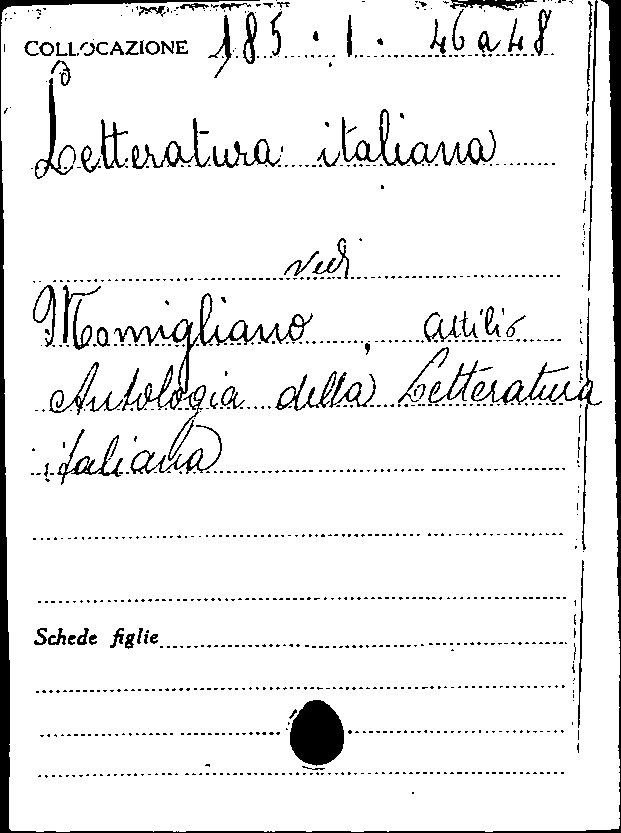 COLLOCAZIONE 185 . 1 . 46 a 48
Letteratura italiana
vedi
Momigliano, Attilio
Antologia della Letteratura
italiana
Schede figlie